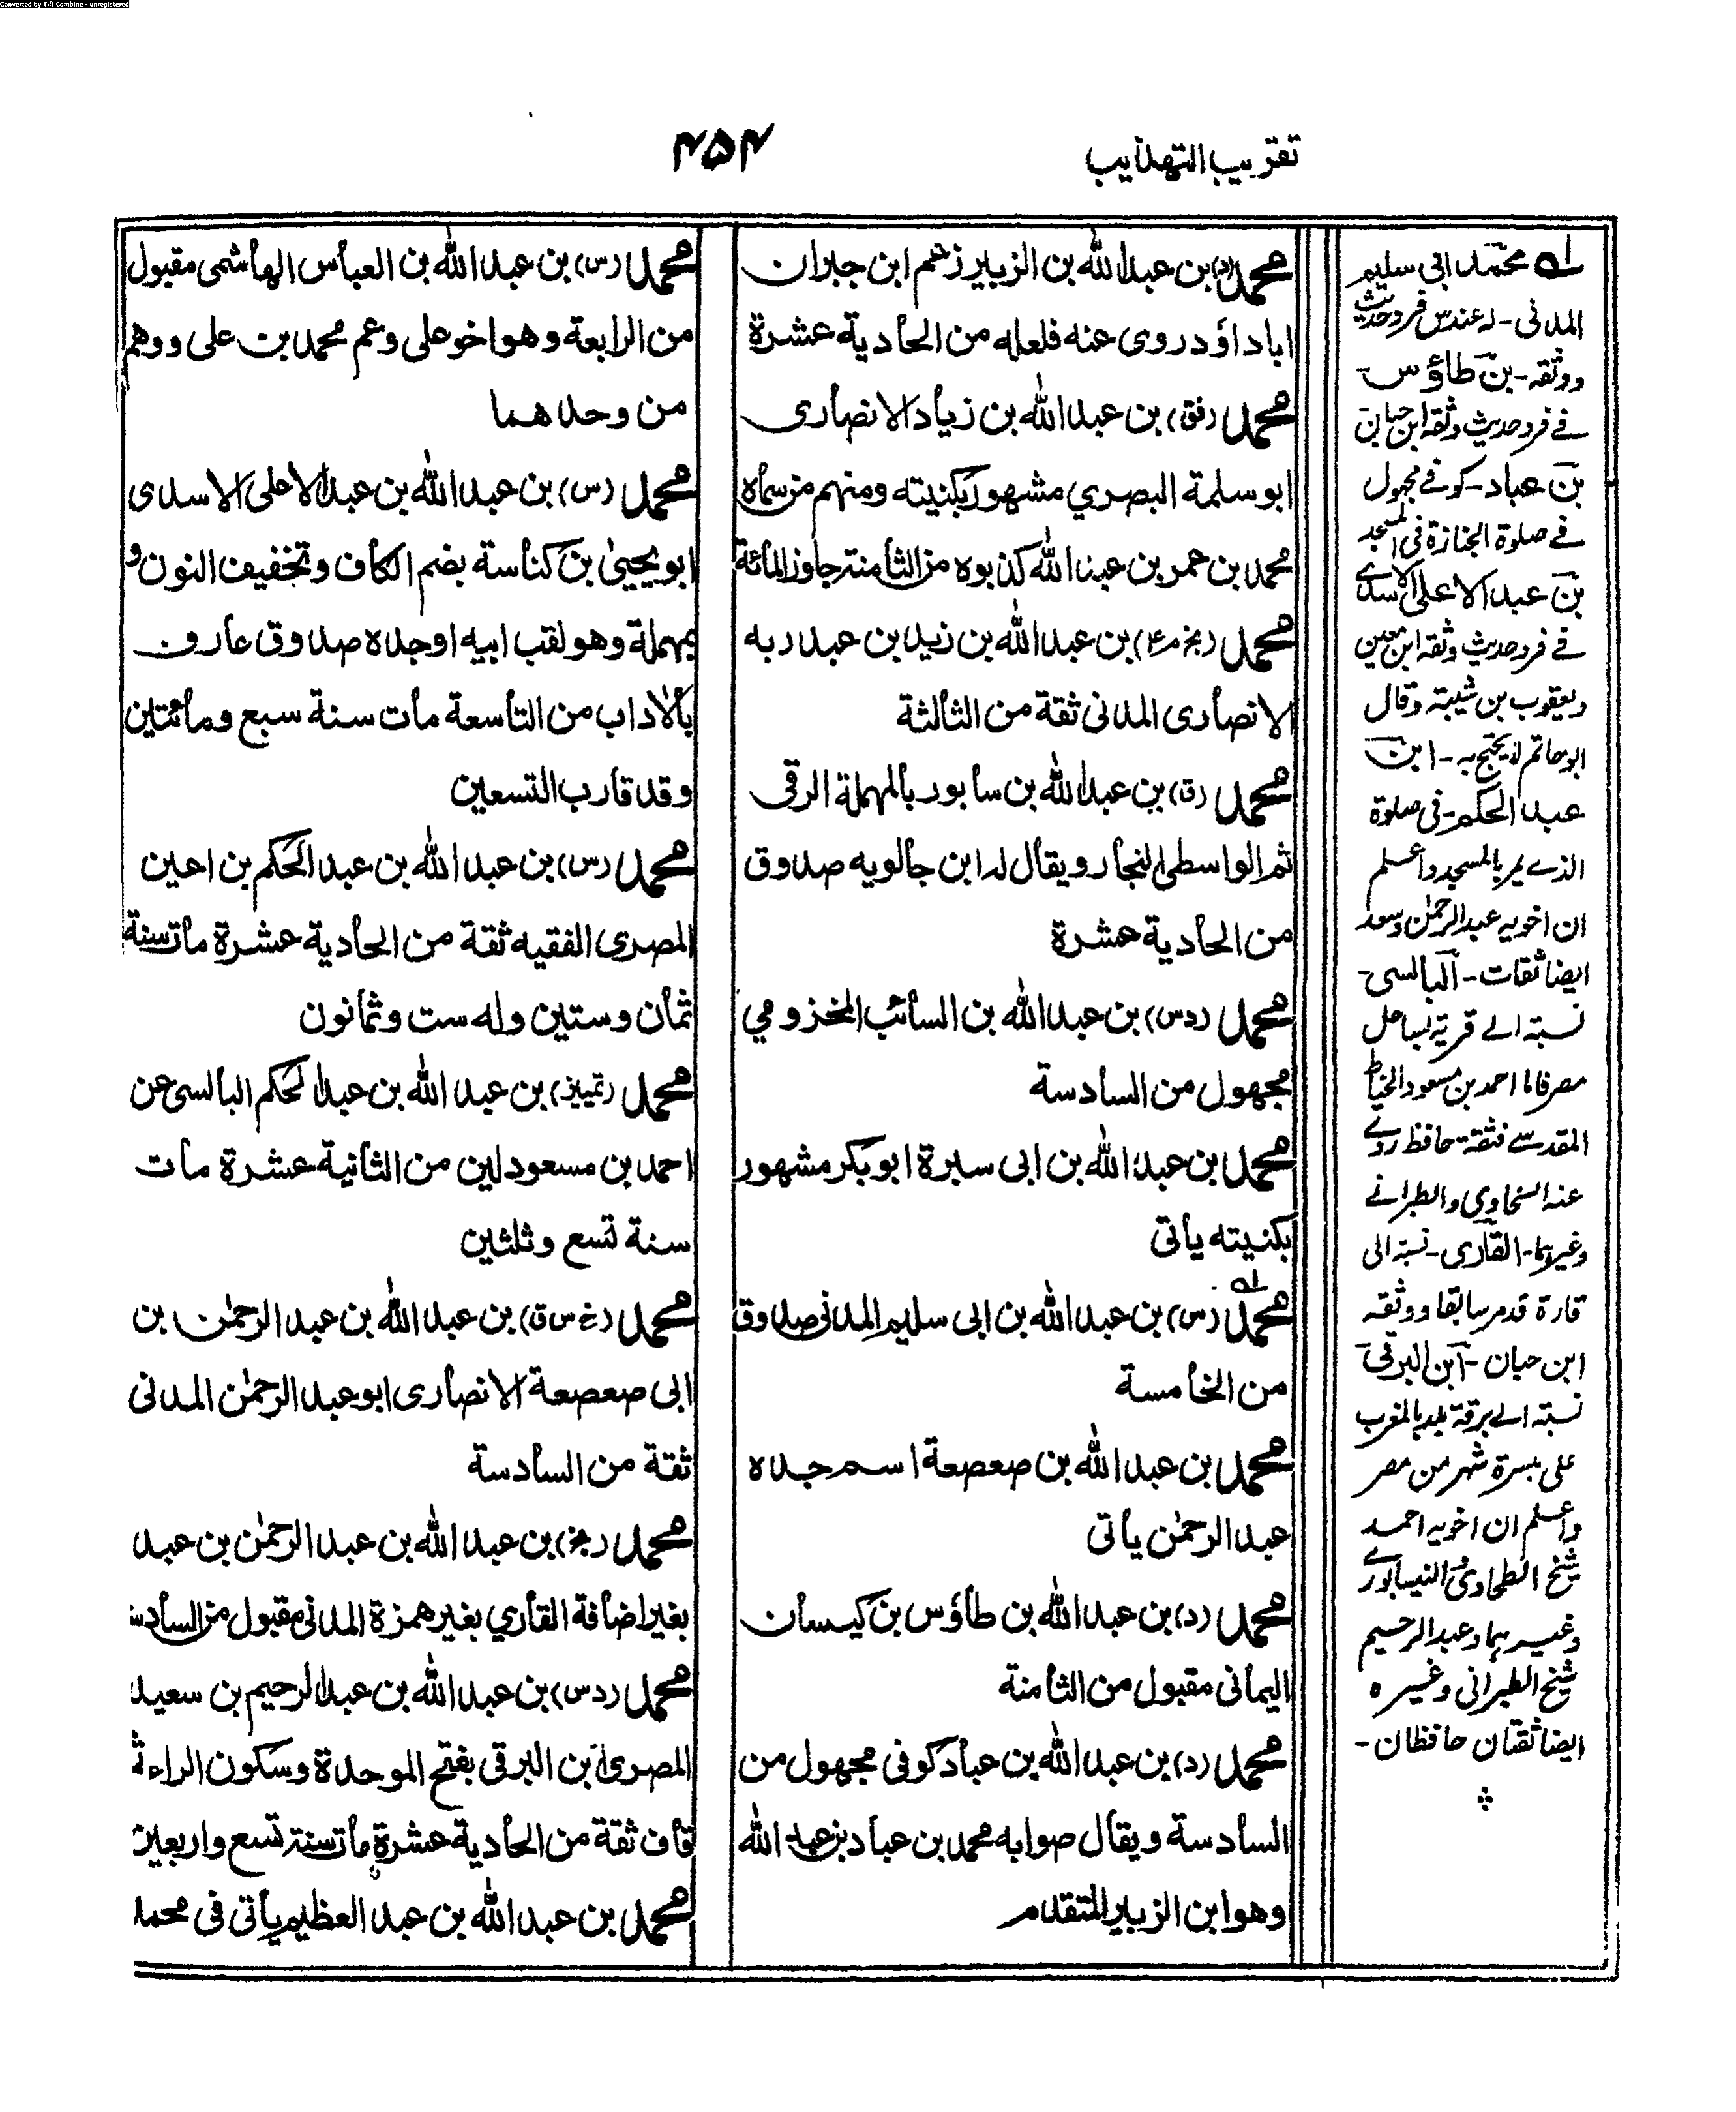 Converted by Tiff Combine - unregistered
تقريب التهذيب
۴۵۴
محمد (د) بن عبدالله بن الزبير زعم ابن جبران
اباداؤد روى عنه فلعله من الحادية عشرة
محمد (فق) بن عبدالله بن زياد الانصارى
ابوسلمة البصري مشهور بكنيته ومنهم من سماه
محمد بن عمر بن عبدالله كذبوه من الثامنة جاوز المائة
محمد (بخ م ۴) بن عبدالله بن زيد بن عبد ربه
الانصارى المدنى ثقة من الثالثة
محمد (ق) بن عبدالله بن سابور بالمهملة الرقى
ثم الواسطى النجار ويقال له ابن جالويه صدوق
من الحادية عشرة
محمد (د س) بن عبدالله بن السائب المخزومي
مجهول من السادسة
محمد بن عبدالله بن ابى سبرة ابوبكر مشهور
بكنيته يأتى
محمد (س) بن عبدالله بن ابى سليم المدنى صدوق
من الخامسة
محمد بن عبدالله بن صعصعة اسم جده
عبدالرحمٰن يأتى
محمد (د) بن عبدالله بن طاؤس بن كيسان
اليمانى مقبول من الثامنة
محمد (د) بن عبدالله بن عباد كوفى مجهول من
السادسة ويقال صوابه محمد بن عباد بن عبد الله
وهو ابن الزبير المتقدم
محمد (س) بن عبدالله بن العباس الهاشمى مقبول
من الرابعة وهو اخو على وعم محمد بن على ووهم
من وحدهما
محمد (س) بن عبدالله بن عبدالاعلى الاسدى
ابويحيىٰ بن كناسة بضم الكاف وتخفيف النون و
بمهملة وهو لقب ابيه اوجده صدوق عارف
بالاٰداب من التاسعة مات سنة سبع ومائتين
وقد قارب التسعين
محمد (س) بن عبدالله بن عبدالحكم بن اعين
المصرى الفقيه ثقة من الحادية عشرة مات سنة
ثمان وستين وله ست وثمانون
محمد (تمييز) بن عبدالله بن عبدالحكم البالسى عن
احمد بن مسعود لين من الثانية عشرة مات
سنة تسع وثلثين
محمد (خ س ق) بن عبدالله بن عبدالرحمٰن بن
ابى صعصعة الانصارى ابوعبدالرحمٰن المدنى
ثقة من السادسة
محمد (بخ) بن عبدالله بن عبدالرحمٰن بن عبد
بغير اضافة القاري بغير همزة المدنى مقبول من السادسة
محمد (د س) بن عبدالله بن عبدالرحيم بن سعيد
المصرى ابن البرقى بفتح الموحدة وسكون الراء ثم
قاف ثقة من الحادية عشرة مات سنة تسع واربعين
محمد بن عبدالله بن عبد العظيم يأتى فى محمد
له محمد ابى سليم
المدنى - له عند س فرد حديث
ووثقه - بن طاؤس -
فے فرد حديث وثقه ابن حبان
بن عباد - كوفے مجهول
فے صلوة الجنازة فى المسجد
بن عبدالاعلى الاسدے
فے فرد حديث وثقه ابن معين
ويعقوب بن شيبة وقال
ابوحاتم لا يحتج به - ابن
عبدالحكم - فى صلوة
الذے يمر بالمسجد واعلم
ان اخويه عبدالرحمٰن وسعد
ايضا ثقات - البالسى -
نسبته الے قرية بساحل
مصر فاما احمد بن مسعود الخياط
المقدسے فثقة حافظ روے
عنه الطحاوى والطبرانے
وغيرهما - القارى - نسبته الى
قارة قد مر سابقا ووثقه
ابن حبان - ابن البرقى
نسبته الے برقة بلد بالمغرب
على مسيرة شهر من مصر
واعلم ان اخويه احمد
شيخ الطحاوى النيسابورے
وغيرهما وعبدالرحيم
شيخ الطبرانى وغيره
ايضا ثقتان حافظان -